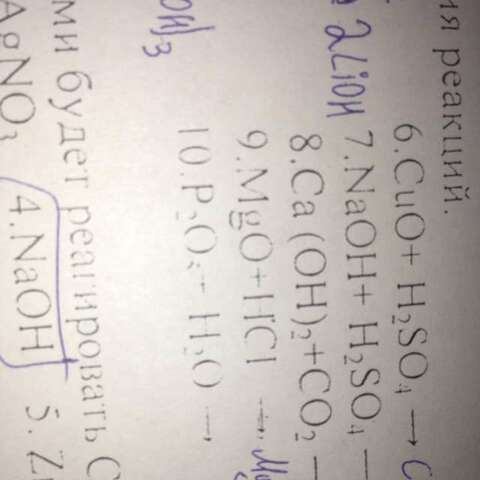 ия реакций.
6.CuO+ H₂SO₄ → C
2LiOH 7.NaOH+ H₂SO₄ —
8.Ca (OH)₂+CO₂ —
9.MgO+HCl → Mg
OH)3
10.P₂O₅+ H₂O →
ми будет реагировать C
AgNO₃ 4.NaOH 5. Z